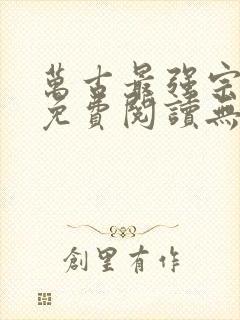 萬古最強宗
免費閱讀無
創里有作